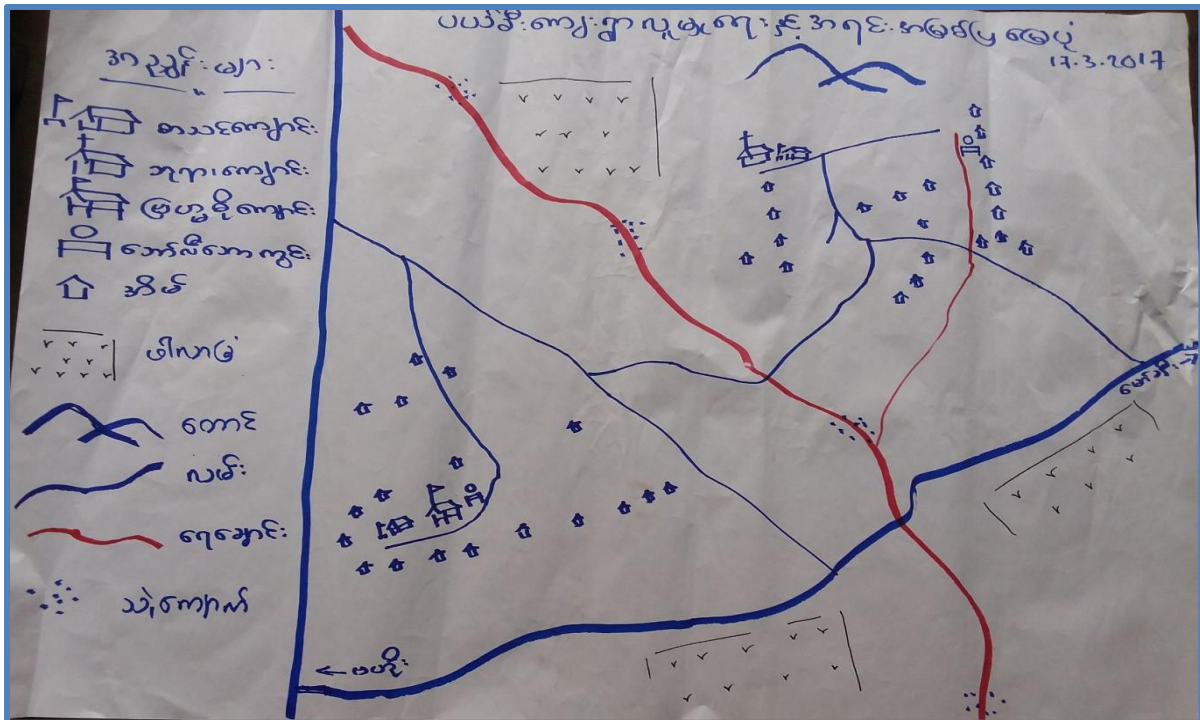 ပယ်ခီးကျေးရွာ လူမှုရေးနှင့် အရင်းအမြစ်ပြ မြေပုံ
17.3.2017
အညွှန်းများ
စာသင်ကျောင်း
ဘုရားကျောင်း
မူကြိုကျောင်း
ဘော်လီဘောကွင်း
အိမ်
ဖါလာခြံ
တောင်
လမ်း
ရေချောင်း
သဲ၊ကျောက်